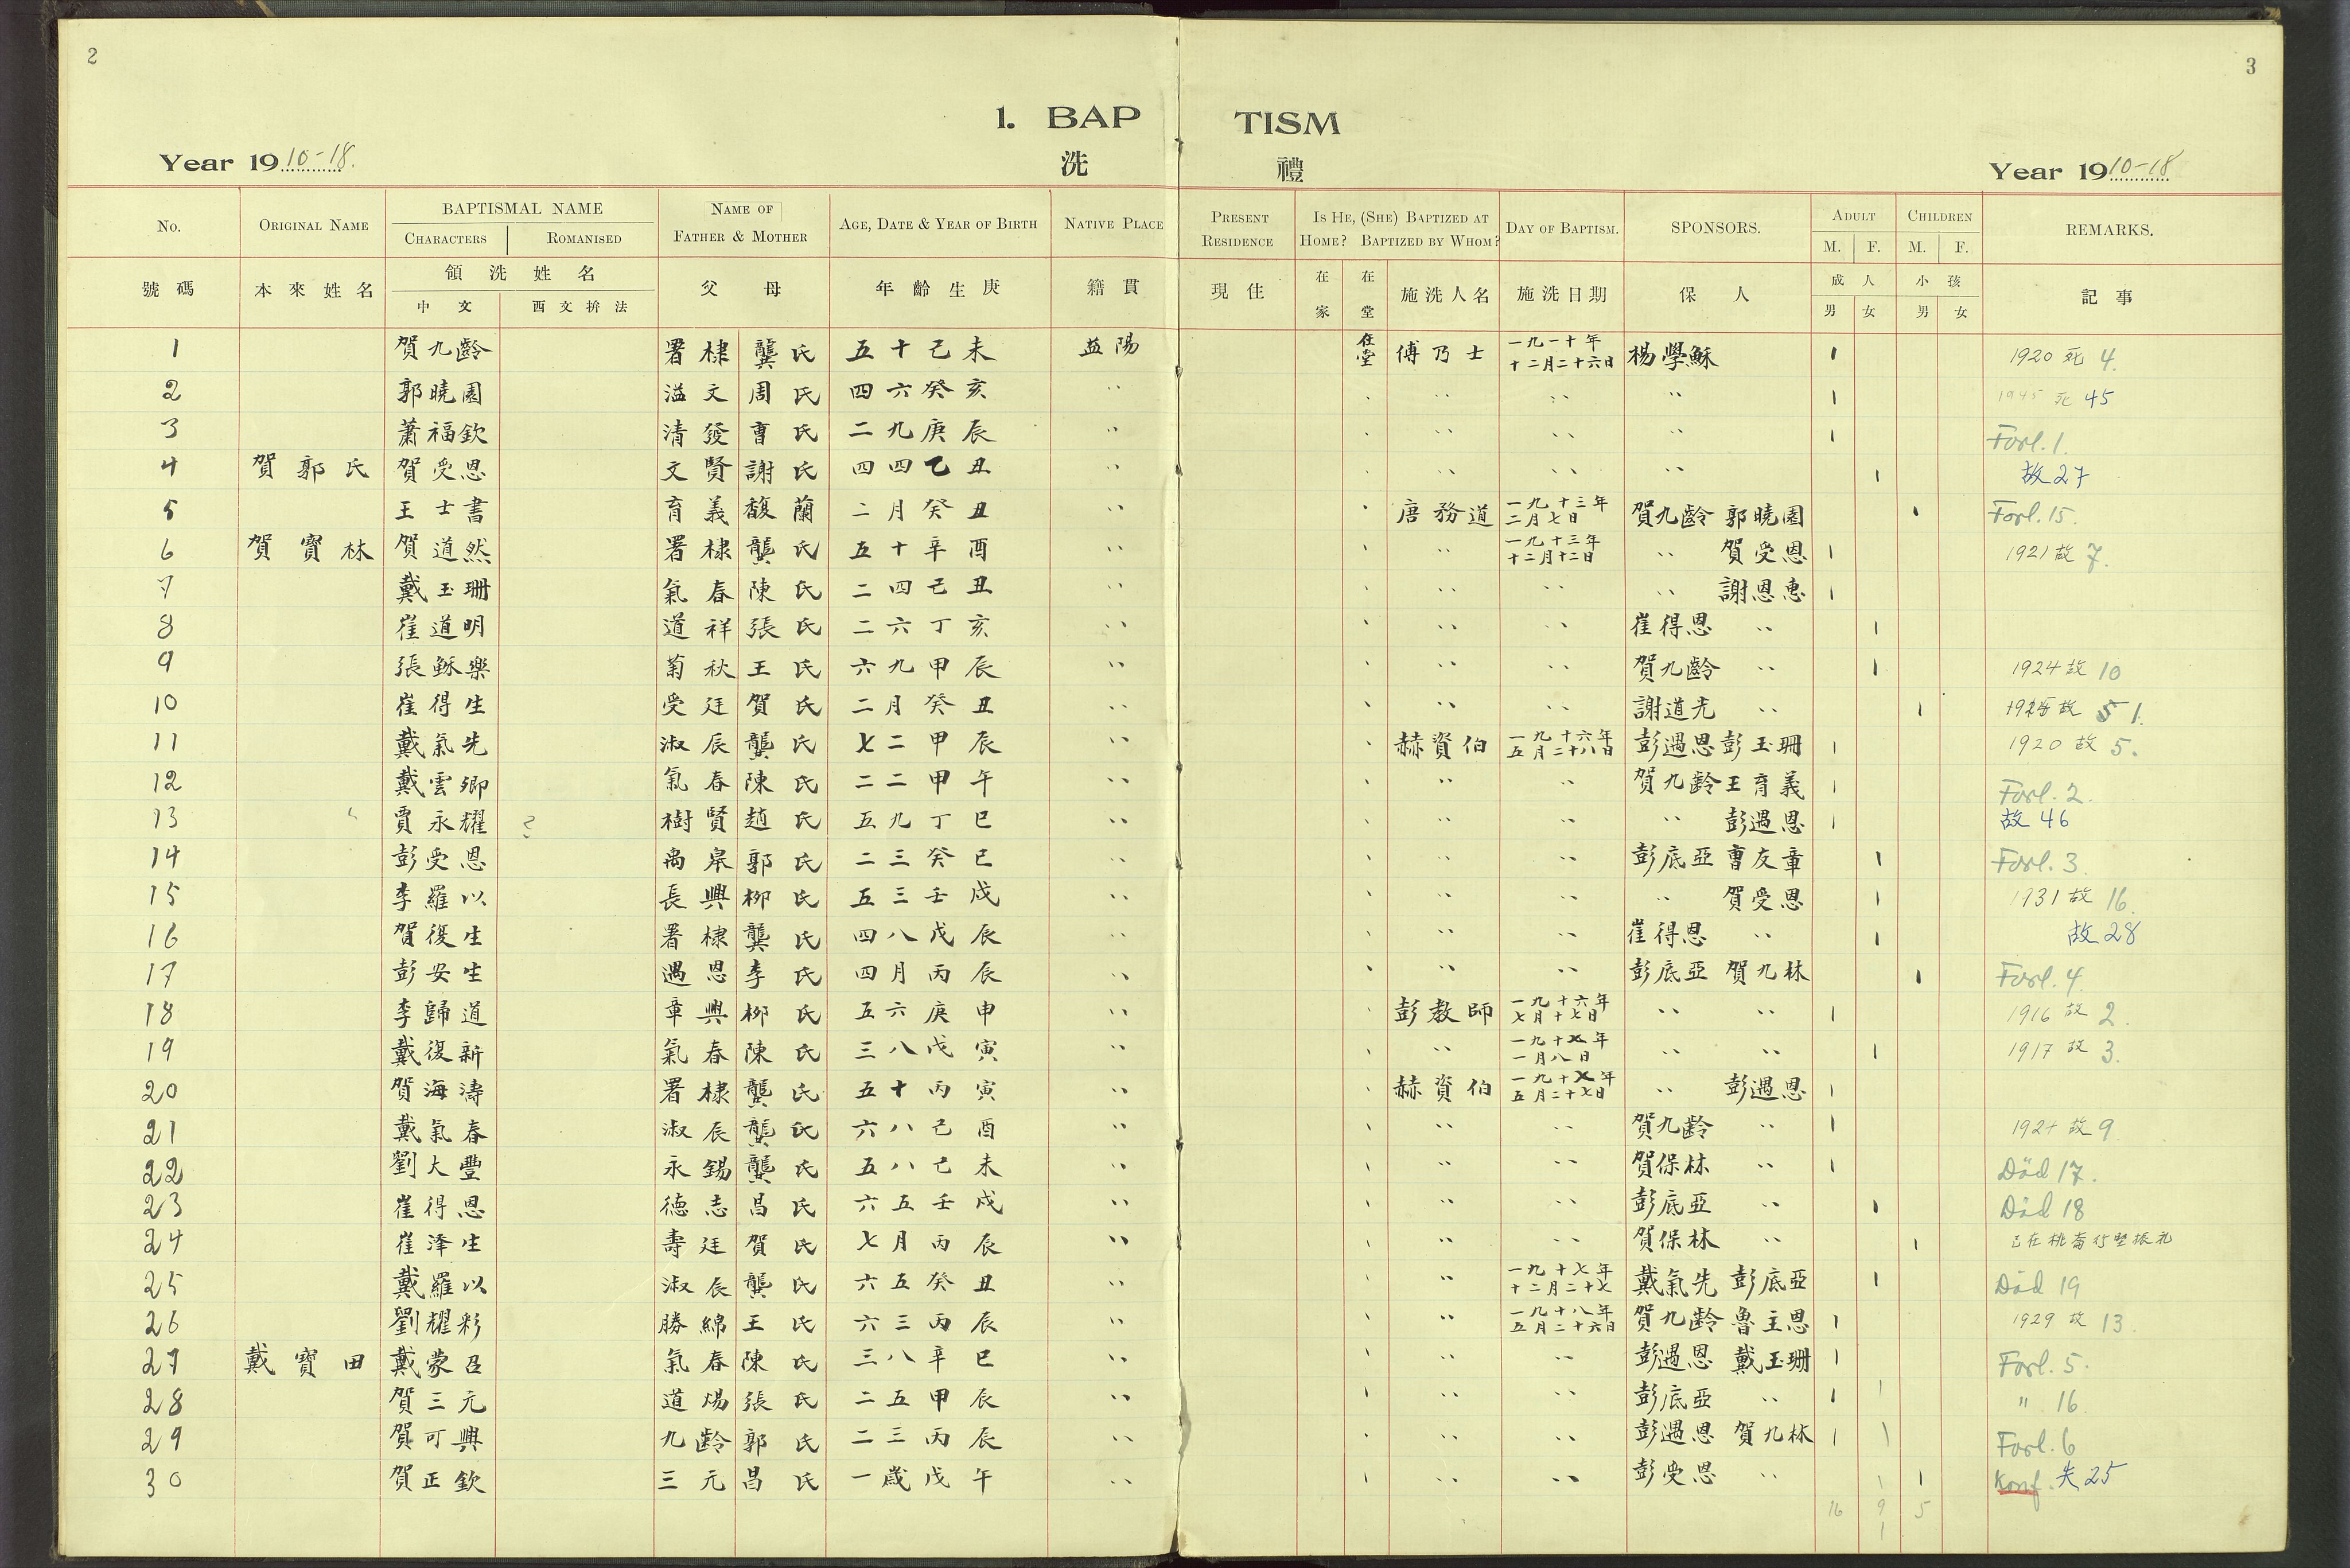 2
3
1. BAP TISM
洗 禮
Year 1910-18. Year 1910-18
No. ORIGINAL NAME BAPTISMAL NAME CHARACTERS ROMANISED NAME OF FATHER & MOTHER AGE, DATE & YEAR OF BIRTH NATIVE PLACE PRESENT RESIDENCE IS HE, (SHE) BAPTIZED AT HOME? BAPTIZED BY WHOM? DAY OF BAPTISM. SPONSORS. ADULT M. F. CHILDREN M. F. REMARKS.
號碼 本來姓名 領洗姓名 中文 西文拚法 父母 年齡生庚 籍貫 現住 在家 在堂 施洗人名 施洗日期 保人 成人 男 女 小孩 男 女 記事
1 賀九齡 署棣 龔氏 五十己未 益陽 在堂 傅乃士 一九一十年十二月二十六日 楊學穌 1 1920 死 4.
2 郭曉園 溢文 周氏 四六癸亥 〃 〃 〃 〃 〃 1 1945 死 45
3 蕭福欽 清發 曹氏 二九庚辰 〃 〃 〃 〃 〃 1 Forl. 1.
4 賀郭氏 賀受恩 文賢 謝氏 四四乙丑 〃 〃 〃 〃 〃 1 故 27
5 王士書 育義 馥蘭 二月癸丑 〃 〃 唐務道 一九十三年二月七日 賀九齡 郭曉園 1 Forl. 15.
6 賀寶林 賀道然 署棣 龔氏 五十辛酉 〃 〃 〃 一九十三年十二月十二日 〃 賀受恩 1 1921 故 7.
7 戴玉珊 氣春 陳氏 二四己丑 〃 〃 〃 〃 〃 謝恩惠 1
8 崔道明 道祥 張氏 二六丁亥 〃 〃 〃 〃 崔得恩 〃 1
9 張穌樂 菊秋 王氏 六九甲辰 〃 〃 〃 〃 賀九齡 〃 1 1924 故 10
10 崔得生 受廷 賀氏 二月癸丑 〃 〃 〃 〃 謝道光 〃 1 故 51.
11 戴氣先 淑辰 龔氏 七二甲辰 〃 〃 赫資伯 一九十六年五月二十八日 彭遇恩 彭玉珊 1 1920 故 5.
12 戴雲卿 氣春 陳氏 二二甲午 〃 〃 〃 〃 賀九齡 王育義 1 Forl. 2.
13 賈永耀 ? 樹賢 趙氏 五九丁巳 〃 〃 〃 〃 〃 彭遇恩 1 故 46
14 彭受恩 禹皋 郭氏 二三癸巳 〃 〃 〃 〃 彭底亞 曹友章 1 Forl. 3.
15 李羅以 長興 柳氏 五三壬戌 〃 〃 〃 〃 〃 賀受恩 1 1931 故 16.
16 賀復生 署棣 龔氏 四八戊辰 〃 〃 〃 〃 崔得恩 〃 1 故 28
17 彭安生 遇恩 李氏 四月丙辰 〃 〃 〃 〃 彭底亞 賀九林 1 Forl. 4.
18 李歸道 章興 柳氏 五六庚申 〃 〃 彭教師 一九十六年七月十七日 〃 〃 1 1916 故 2.
19 戴復新 氣春 陳氏 三八戊寅 〃 〃 〃 一九十七年一月八日 〃 〃 1 1917 故 3.
20 賀海濤 署棣 龔氏 五十丙寅 〃 〃 赫資伯 一九十七年五月二十七日 〃 彭遇恩 1
21 戴氣春 淑辰 龔氏 六八己酉 〃 〃 〃 〃 賀九齡 〃 1 故 9.
22 劉大豐 永錫 龔氏 五八己未 〃 〃 〃 〃 賀保林 〃 1 Död 17.
23 崔得恩 德志 昌氏 六五壬戌 〃 〃 〃 〃 彭底亞 〃 1 Död 18
24 崔澤生 壽廷 賀氏 七月丙辰 〃 〃 〃 〃 賀保林 〃 1 已在桃
25 戴羅以 淑辰 龔氏 六五癸丑 〃 〃 〃 一九十七年十二月二十七 戴氣先 彭底亞 1 Död 19
26 劉耀彩 勝綿 王氏 六三丙辰 〃 〃 〃 一九十八年五月二十六日 賀九齡 魯主恩 1 1929 故 13.
27 戴寶田 戴蒙召 氣春 陳氏 三八辛巳 〃 〃 〃 〃 彭遇恩 戴玉珊 1 Forl. 5.
28 賀三元 道煬 張氏 二五甲辰 〃 〃 〃 〃 彭底亞 〃 1 〃 16.
29 賀可興 九齡 郭氏 二三丙辰 〃 〃 〃 〃 彭遇恩 賀九林 1 Forl. 6
30 賀正欽 三元 昌氏 一歲戊午 〃 〃 〃 〃 彭受恩 〃 1 Konf. 失 25
16 9 5
1